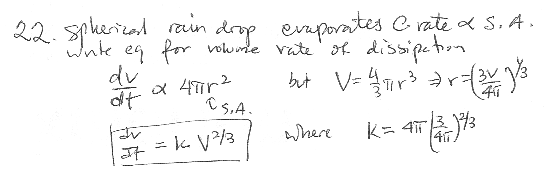 22. Spherical rain drop evaporates @ rate ∝ S.A.
write eq for volume rate of dissipation
dv/dt ∝ 4πr² but V = 4/3 πr³ ⇒ r = (3V/4π)^1/3
S.A.
dv/dt = k V^2/3 where K = 4π (3/4π)^2/3